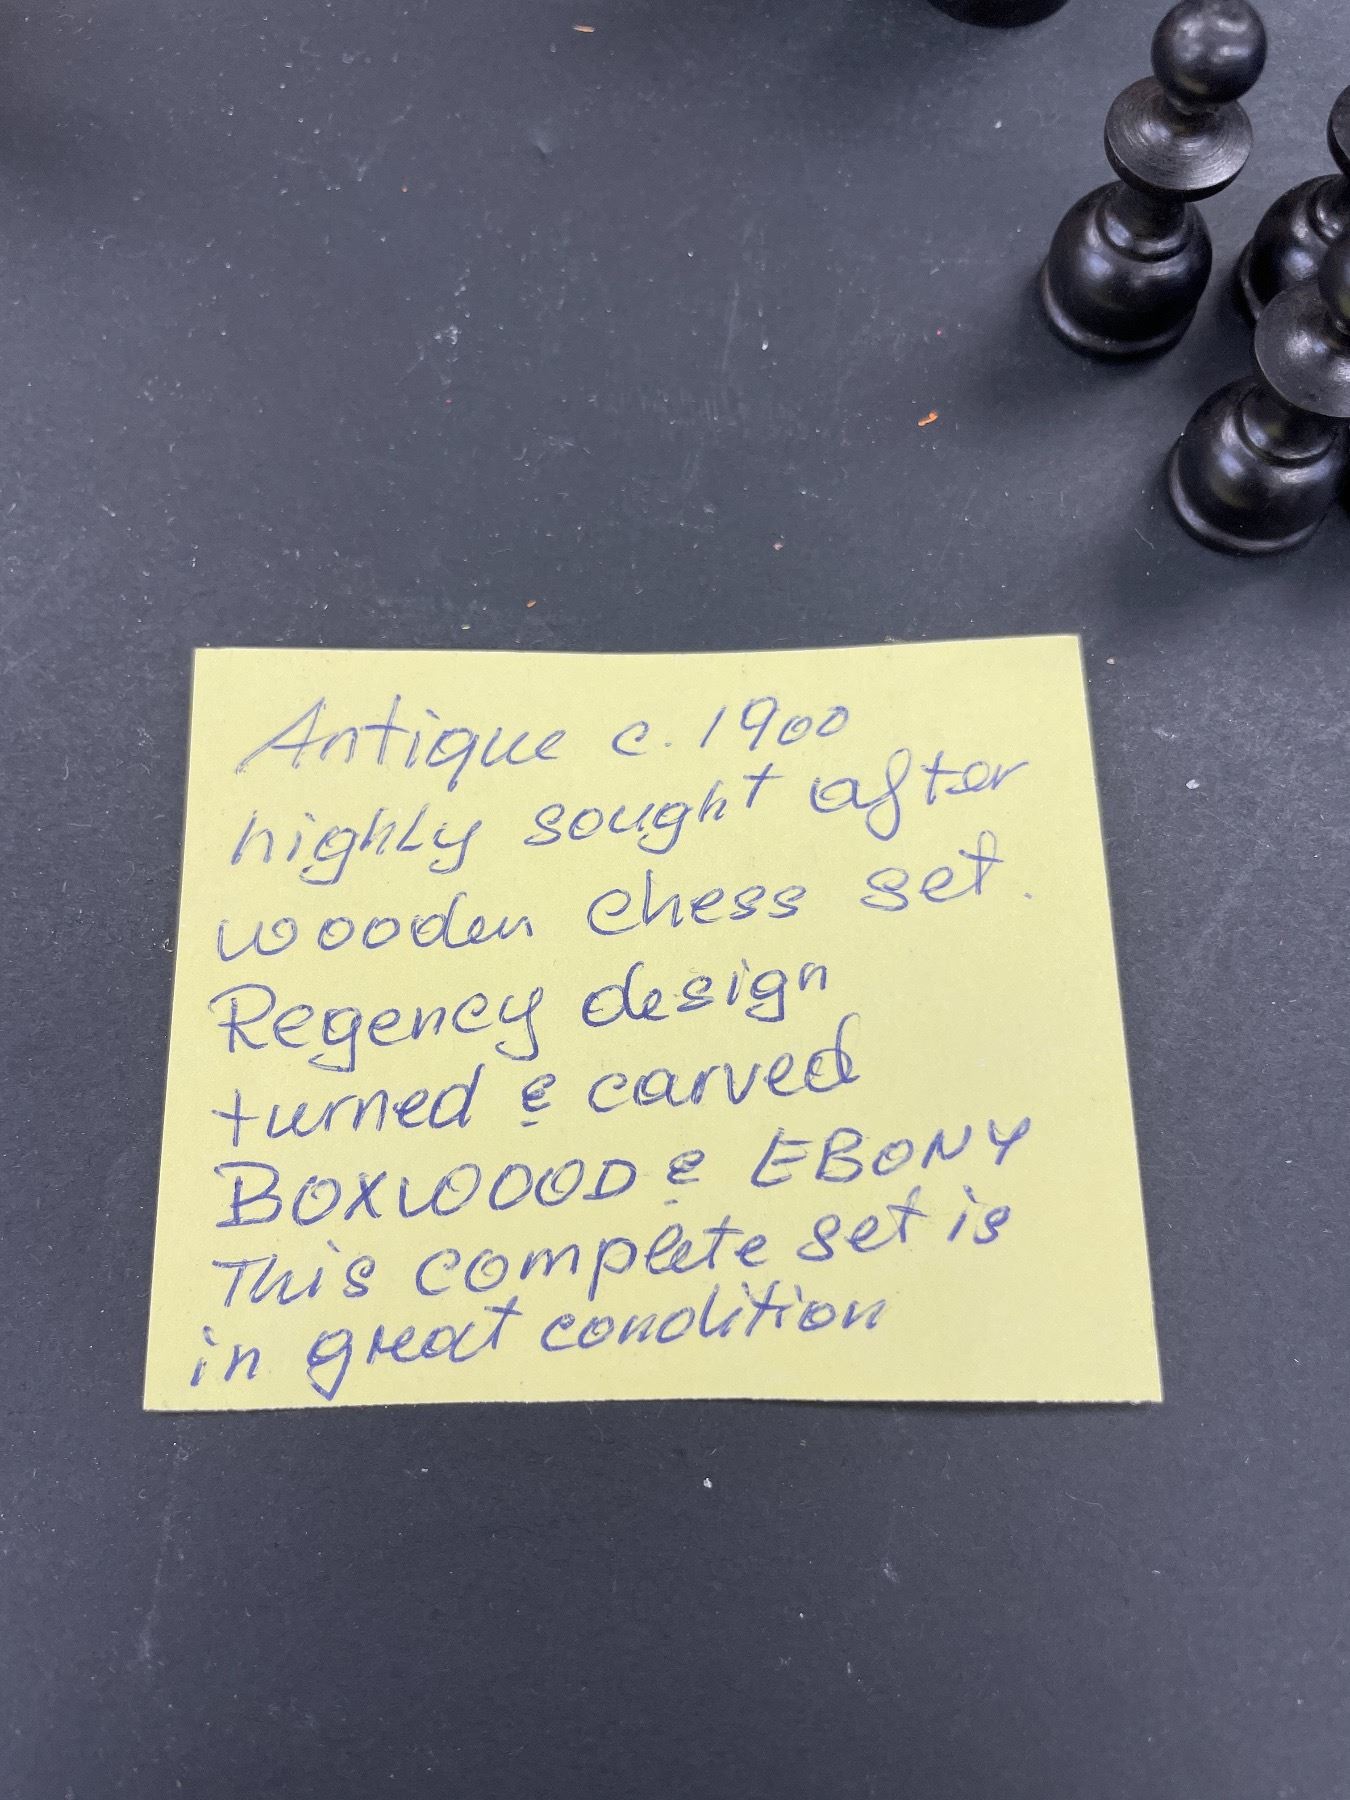 Antique c. 1900
highly sought after
wooden chess set.
Regency design
turned & carved
BOXWOOD & EBONY
This complete set is
in great condition